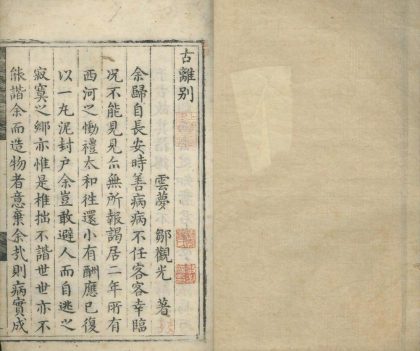 古離別
雲夢 鄒觀光 著
余歸自長安時善病病不任客客幸臨
况不能見見亦無所報謁居二年所有
西河之慟禮太和徃還小有酬應已復
以一丸泥封户余豈敢避人而自逃之
寂寞之鄉亦惟是椎拙不諧世世亦不
能諧余而造物者意棄余於則病實成